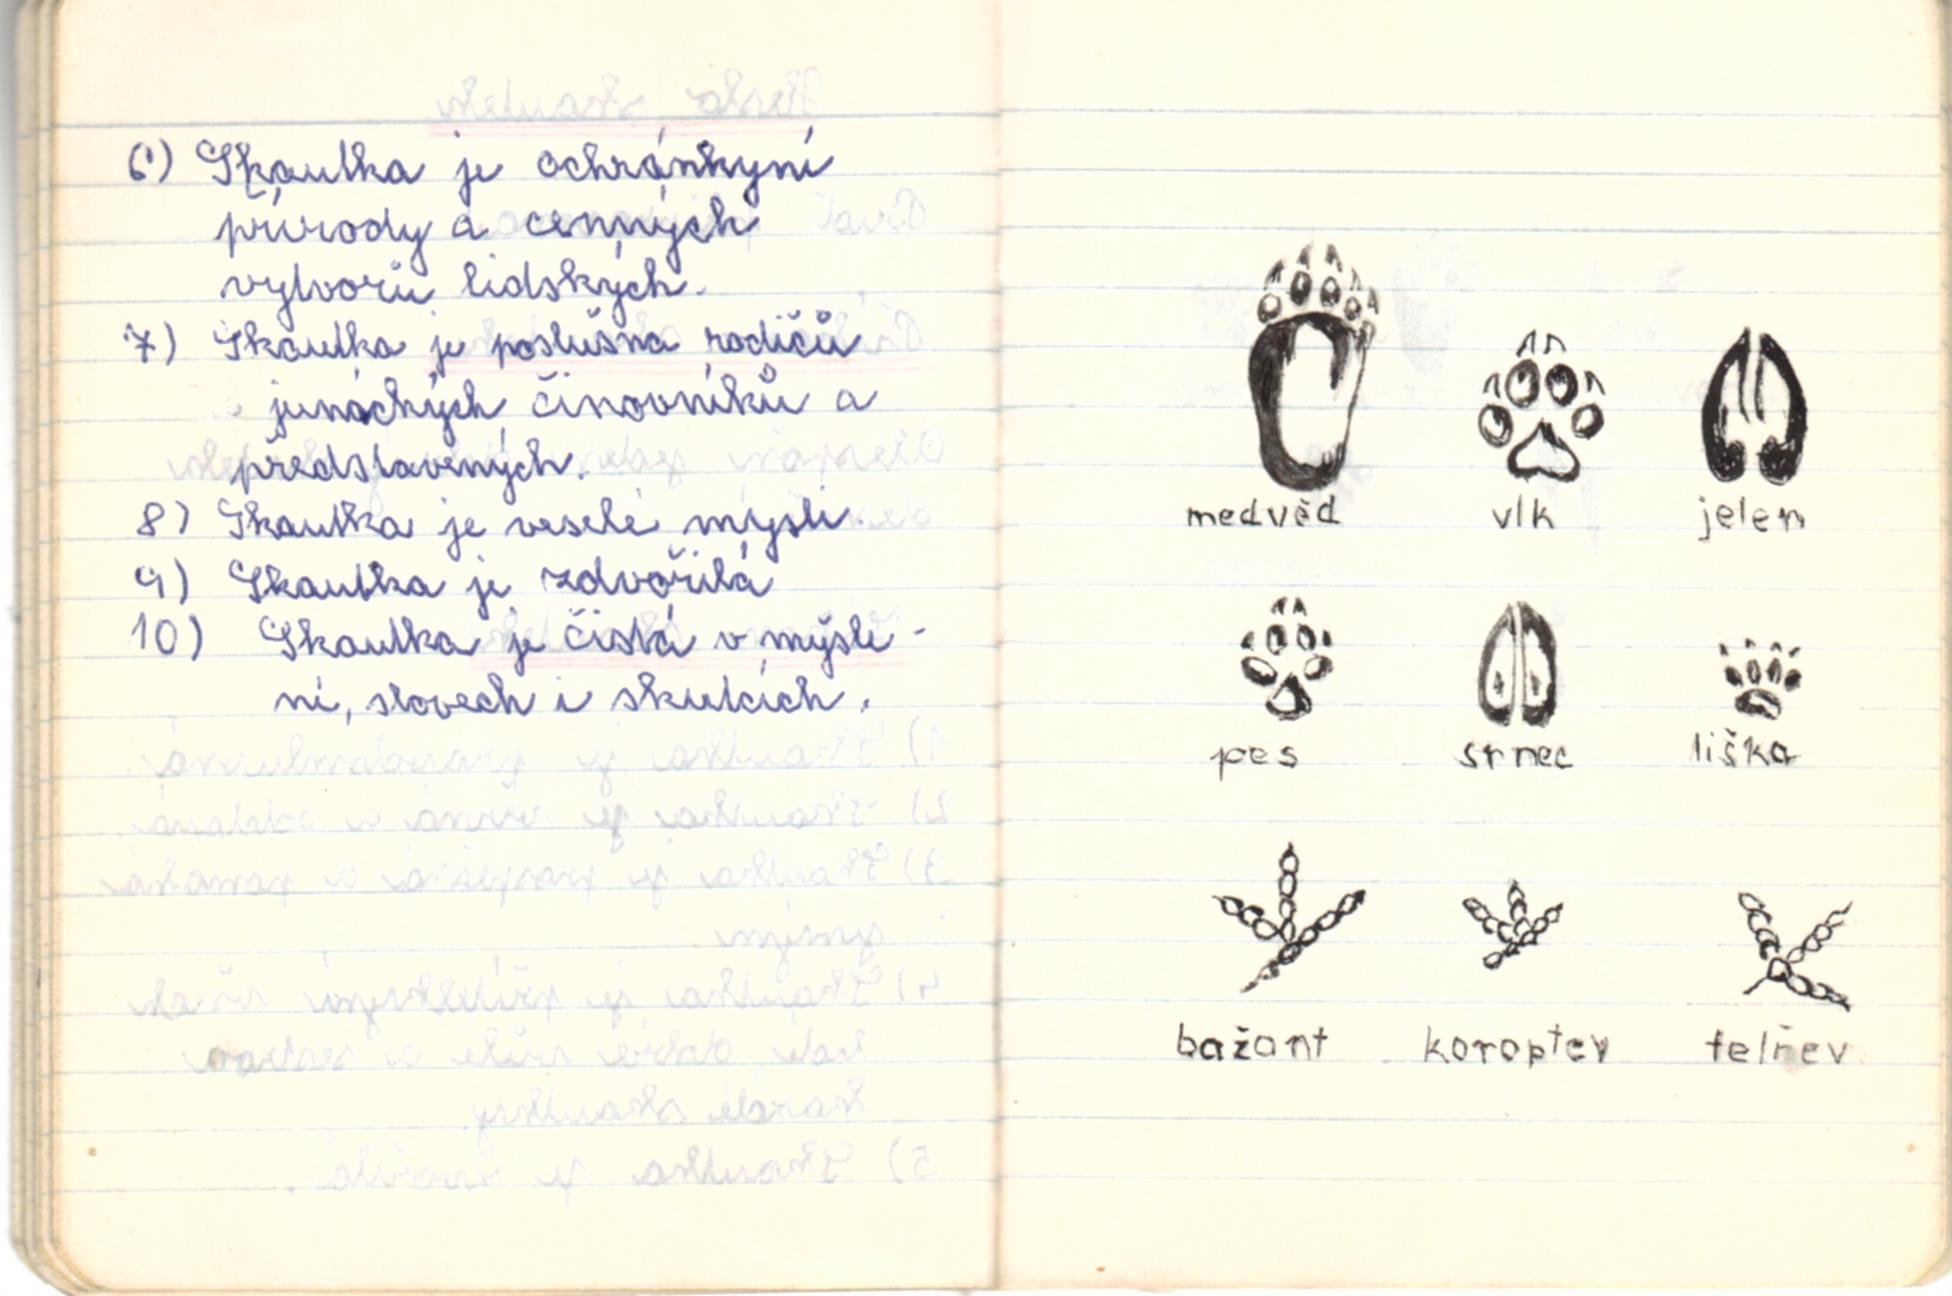 6) Skautka je ochránkyní
přírody a cenných
výtvorů lidských.
7) Skautka je poslušna rodičů
junáckých činovníků a
představených.
8) Skautka je veselé mysli.
9) Skautka je zdvořilá
10) Skautka je čistá v myšle-
ní, slovech i skutcích.
medvěd vlk jelen
pes srnec liška
bažant koroptev tetřev